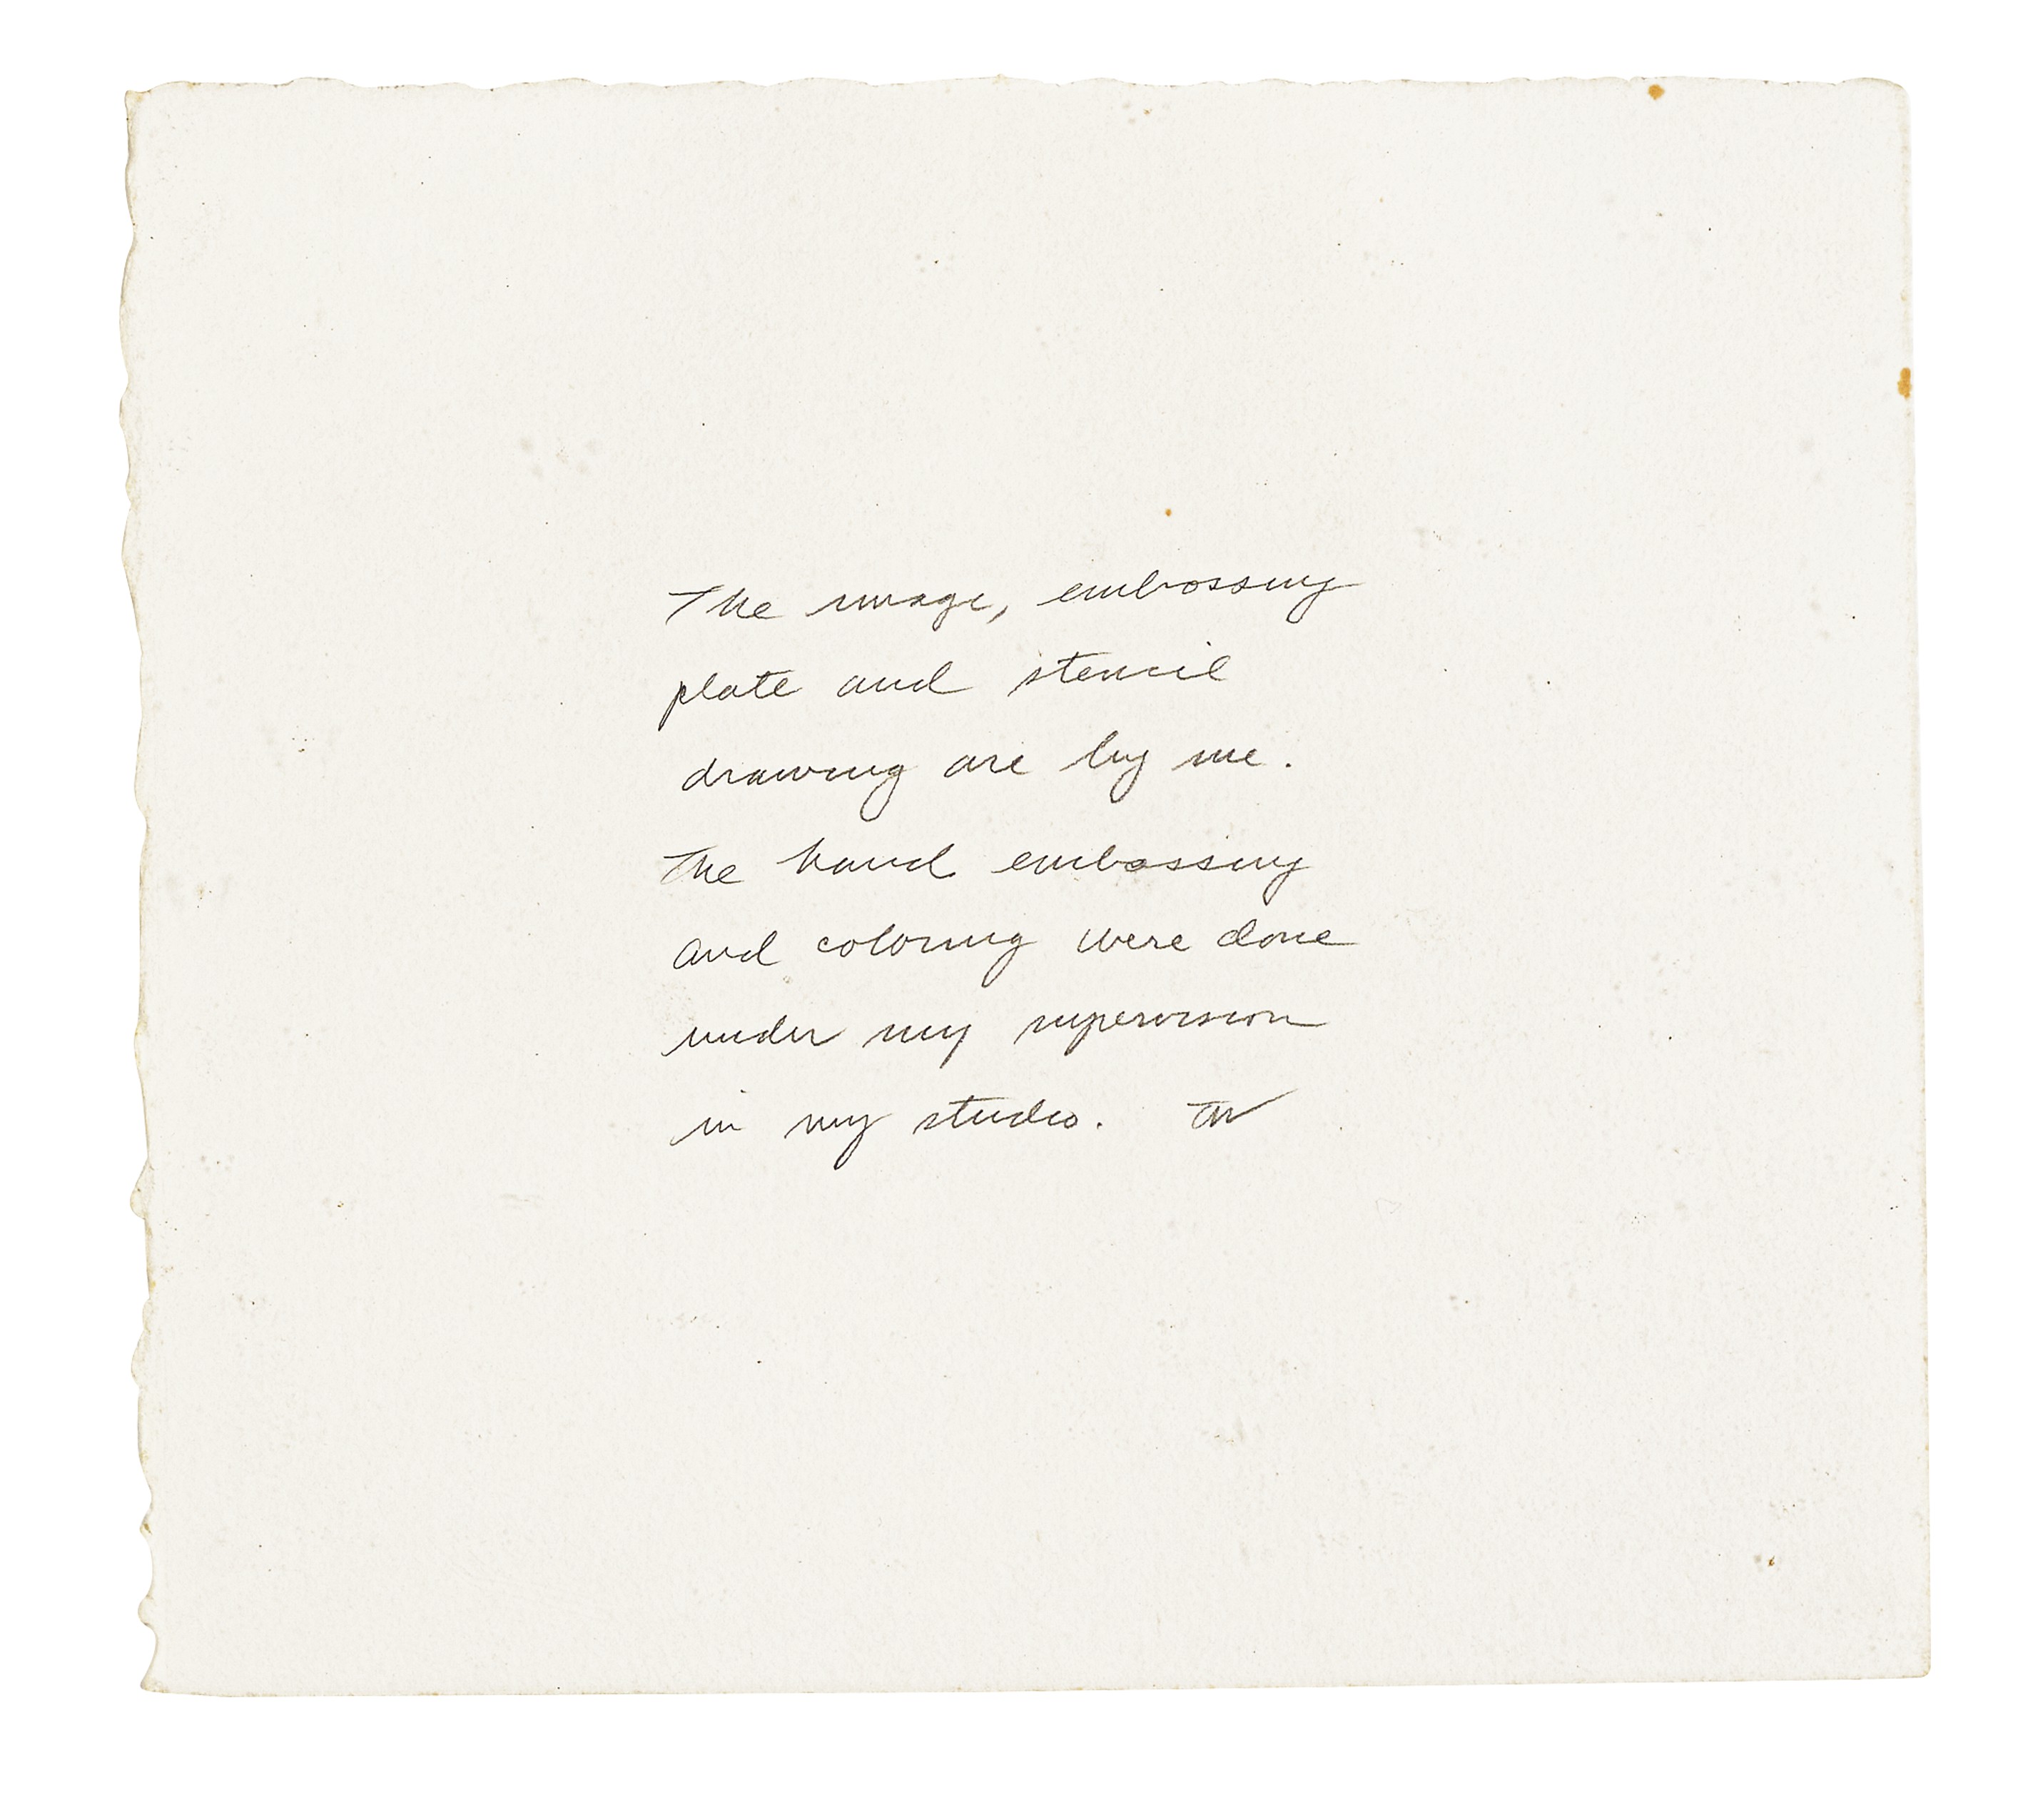 The image, embossing
plate and stencil
drawing are by me.
The hand embossing
and coloring were done
under my supervision
in my studio. TW